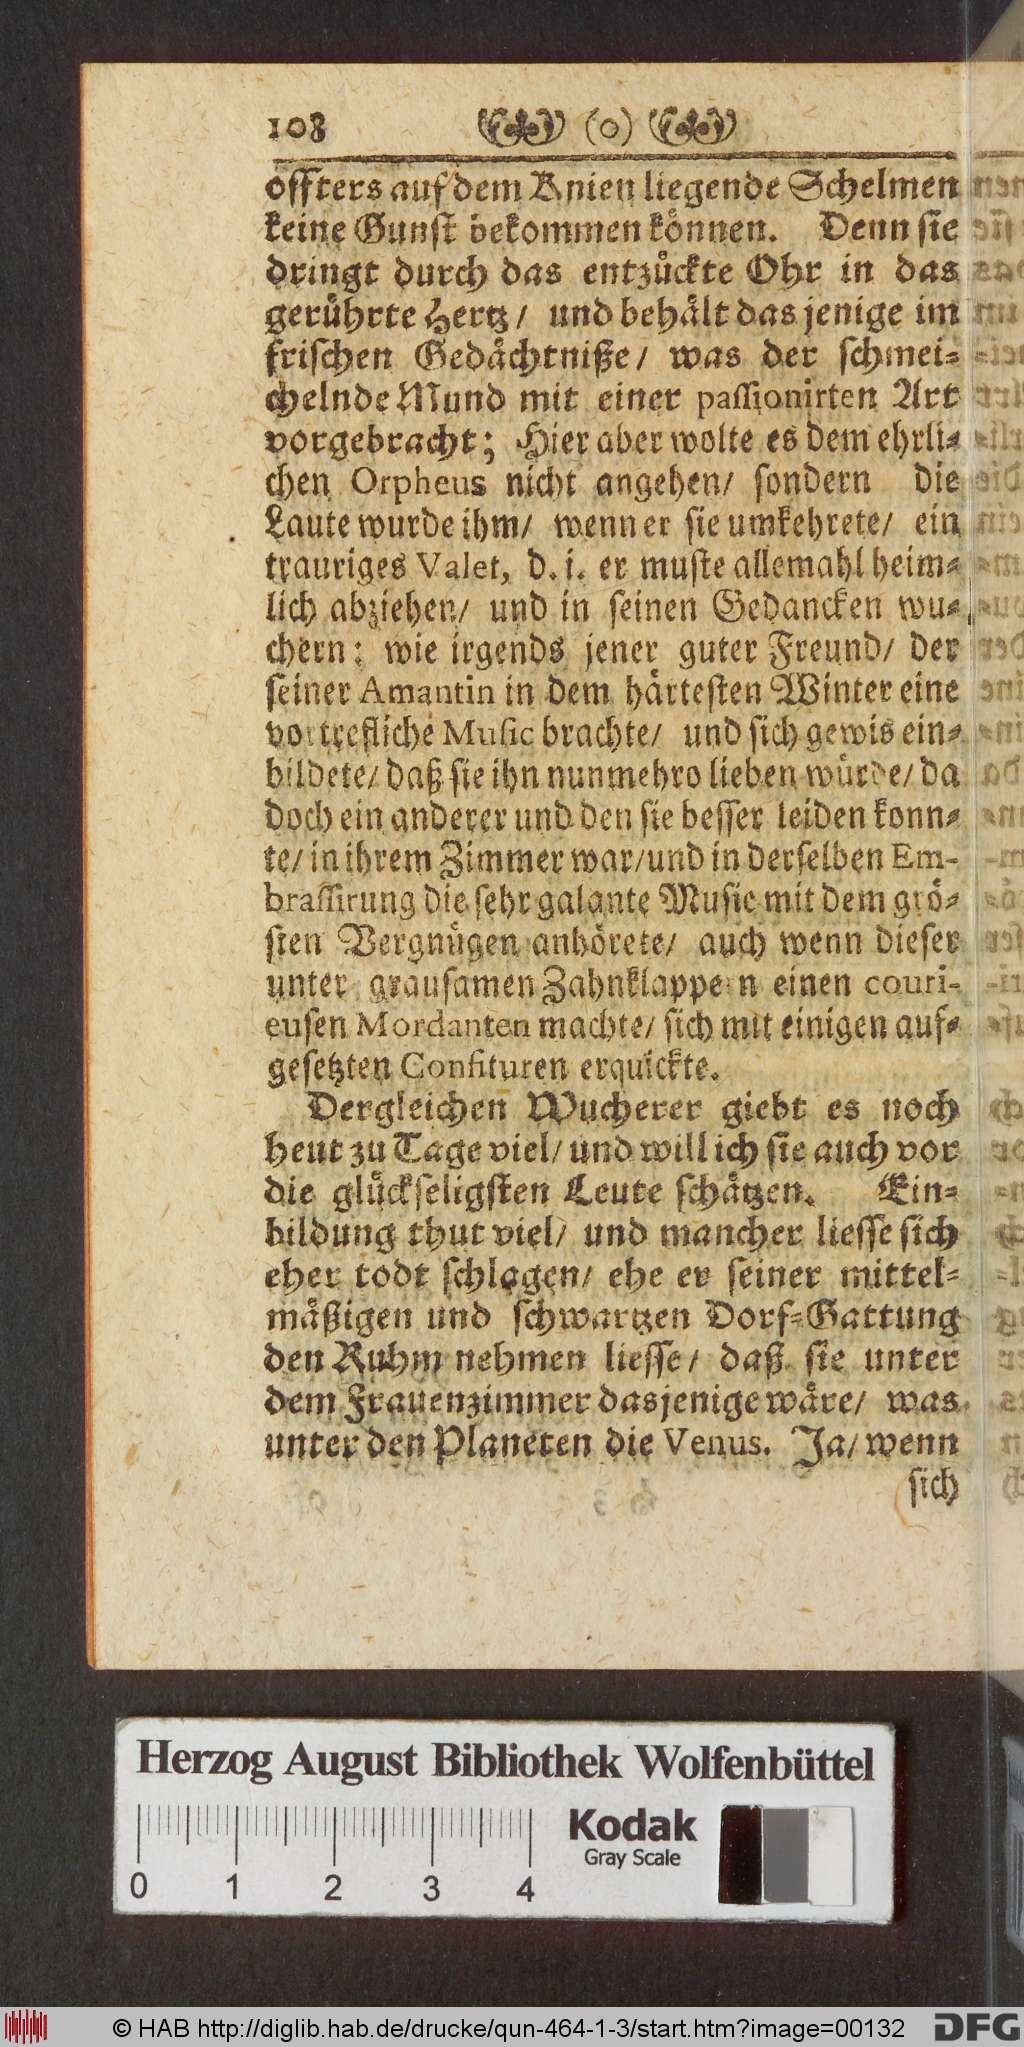 108 (o)
öffters auf dem Knien liegende Schelmen
keine Gunst bekommen können. Denn sie
dringt durch das entzückte Ohr in das
gerührte Hertz/ und behält das jenige im
frischen Gedächtniße/ was der schmei-
chelnde Mund mit einer passionirten Art
vorgebracht; Hier aber wolte es dem ehrli-
chen Orpheus nicht angehen/ sondern die
Laute wurde ihm/ wenn er sie umkehrete/ ein
trauriges Valet, d. i. er muste allemahl heim-
lich abziehen/ und in seinen Gedancken wu-
chern: wie irgends jener guter Freund/ der
seiner Amantin in dem härtesten Winter eine
vortrefliche Music brachte/ und sich gewis ein-
bildete/ daß sie ihn nunmehro lieben würde/ da
doch ein anderer und den sie besser leiden konn-
te/ in ihrem Zimmer war/ und in derselben Em-
brassirung die sehr galante Music mit dem grö-
sten Vergnügen anhörete/ auch wenn dieser
unter grausamen Zahnklappern einen couri-
eusen Mordanten machte/ sich mit einigen auf-
gesetzten Confituren erquickte.
Dergleichen Wucherer giebt es noch
heut zu Tage viel/ und will ich sie auch vor
die glückseligsten Leute schätzen. Ein-
bildung thut viel/ und mancher liesse sich
eher todt schlagen/ ehe er seiner mittel-
mäßigen und schwartzen Dorf-Gattung
den Ruhm nehmen liesse/ daß sie unter
dem Frauenzimmer dasjenige wäre/ was
unter den Planeten die Venus. Ja/ wenn
sich
Herzog August Bibliothek Wolfenbüttel
Kodak
Gray Scale
0 1 2 3 4
© HAB http://diglib.hab.de/drucke/qun-464-1-3/start.htm?image=00132 DFG